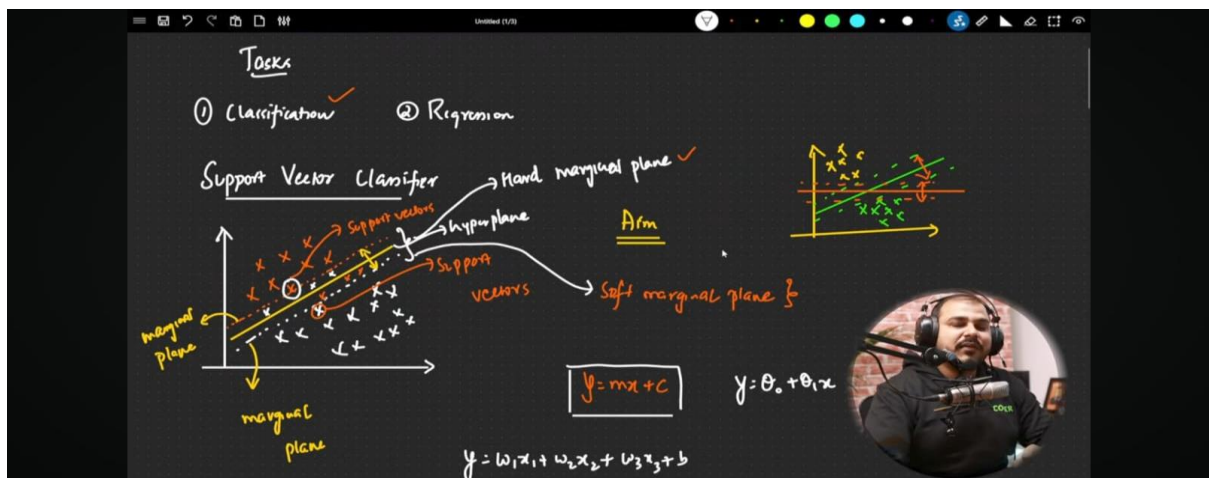 Untitled (1/3)
Tasks
① Classification ✓ ② Regression
Support Vector Classifier
Hard marginal plane ✓
hyperplane
Support vectors
Support
vectors
Soft marginal plane }
Aim
marginal
plane
marginal
plane
y=mx+c
y=θ₀+θ₁x
y=w₁x₁+w₂x₂+w₃x₃+b